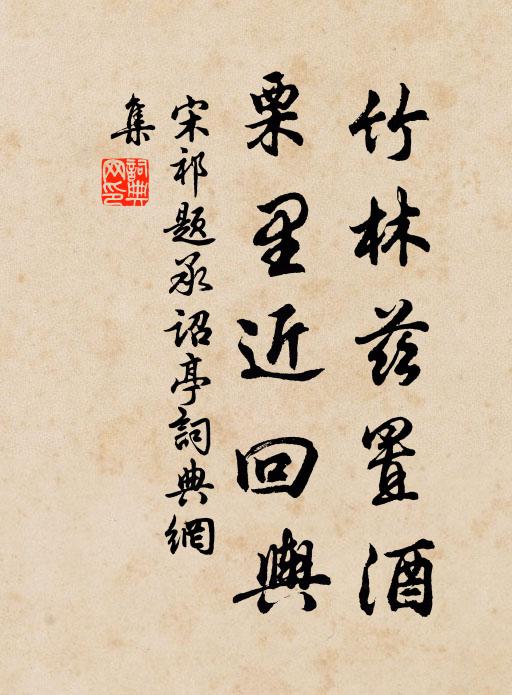 竹林茲置酒
栗里近回輿
宋祁題承詔亭詞典網
集
詞典網印